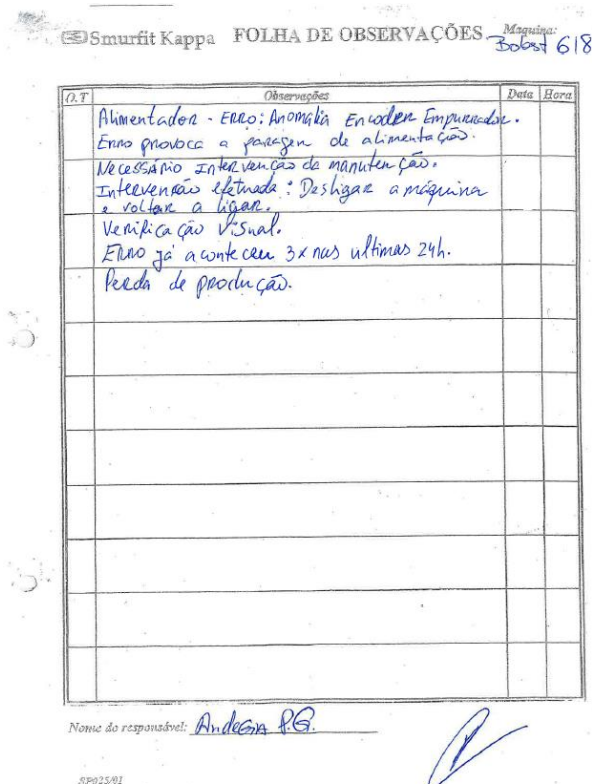 Smurfit Kappa FOLHA DE OBSERVAÇÕES Maquina:
Bobst 618
O.T Observações Data Hora
Alimentador - Erro: Anomalia Encoder Empurrador.
Erro provoca a paragem de alimentação.
Necessário Intervenção da manutenção.
Intervenção efetuada: Desligar a máquina
e voltar a ligar.
Verificação Visual.
Erro já aconteceu 3x nas ultimas 24h.
Perda de produção.
Nome do responsável: P.G.
SP025/01